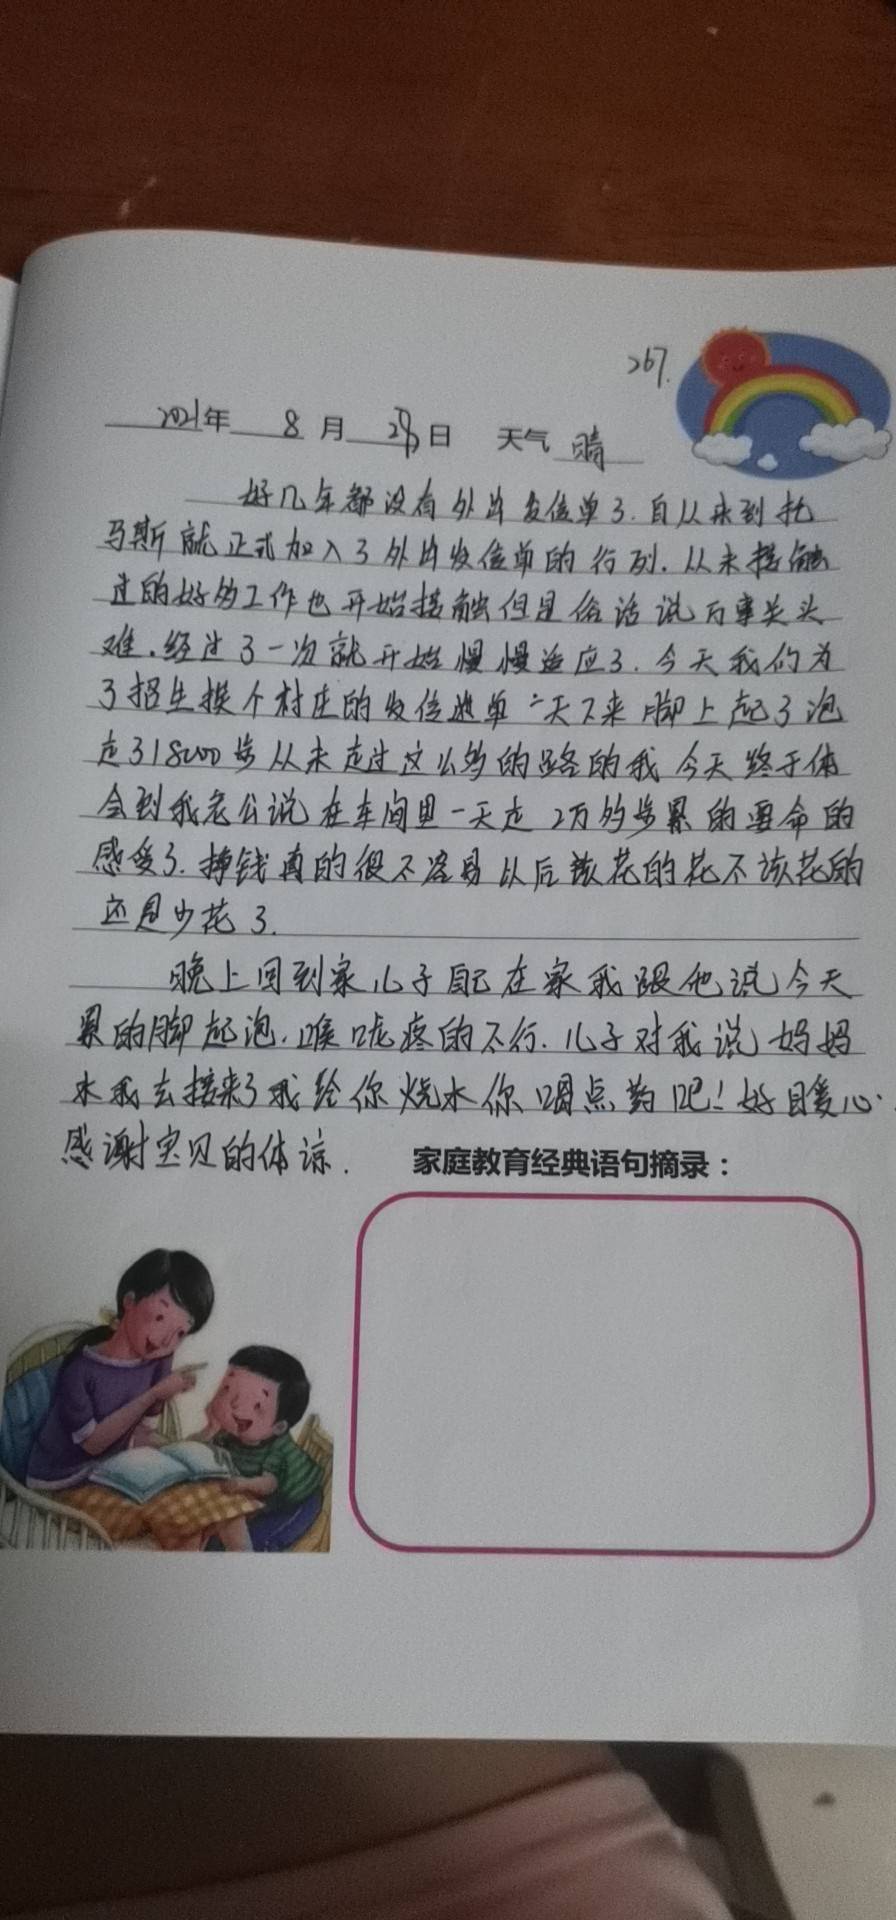 267.
2021年 8月 28日 天气 晴
好几年都没有外出发传单了.自从来到托
马斯就正式加入了外出发传单的行列.从未接触
过的好多工作也开始接触但是俗话说万事关头
难.经过了一次就开始慢慢适应了.今天我们为
了招生挨个村庄的发传单一天下来脚上起了泡
走了18000步从未走过这么多的路的我今天终于体
会到我老公说在车间里一天走2万多步累的要命的
感受了.挣钱真的很不容易以后该花的花不该花的
还是少花了.
晚上回到家儿子自己在家我跟他说今天
累的脚起泡.喉咙疼的不行.儿子对我说妈妈
水我去接来了我给你烧水你喝点药吧!好暖心.
感谢宝贝的体谅.
家庭教育经典语句摘录：